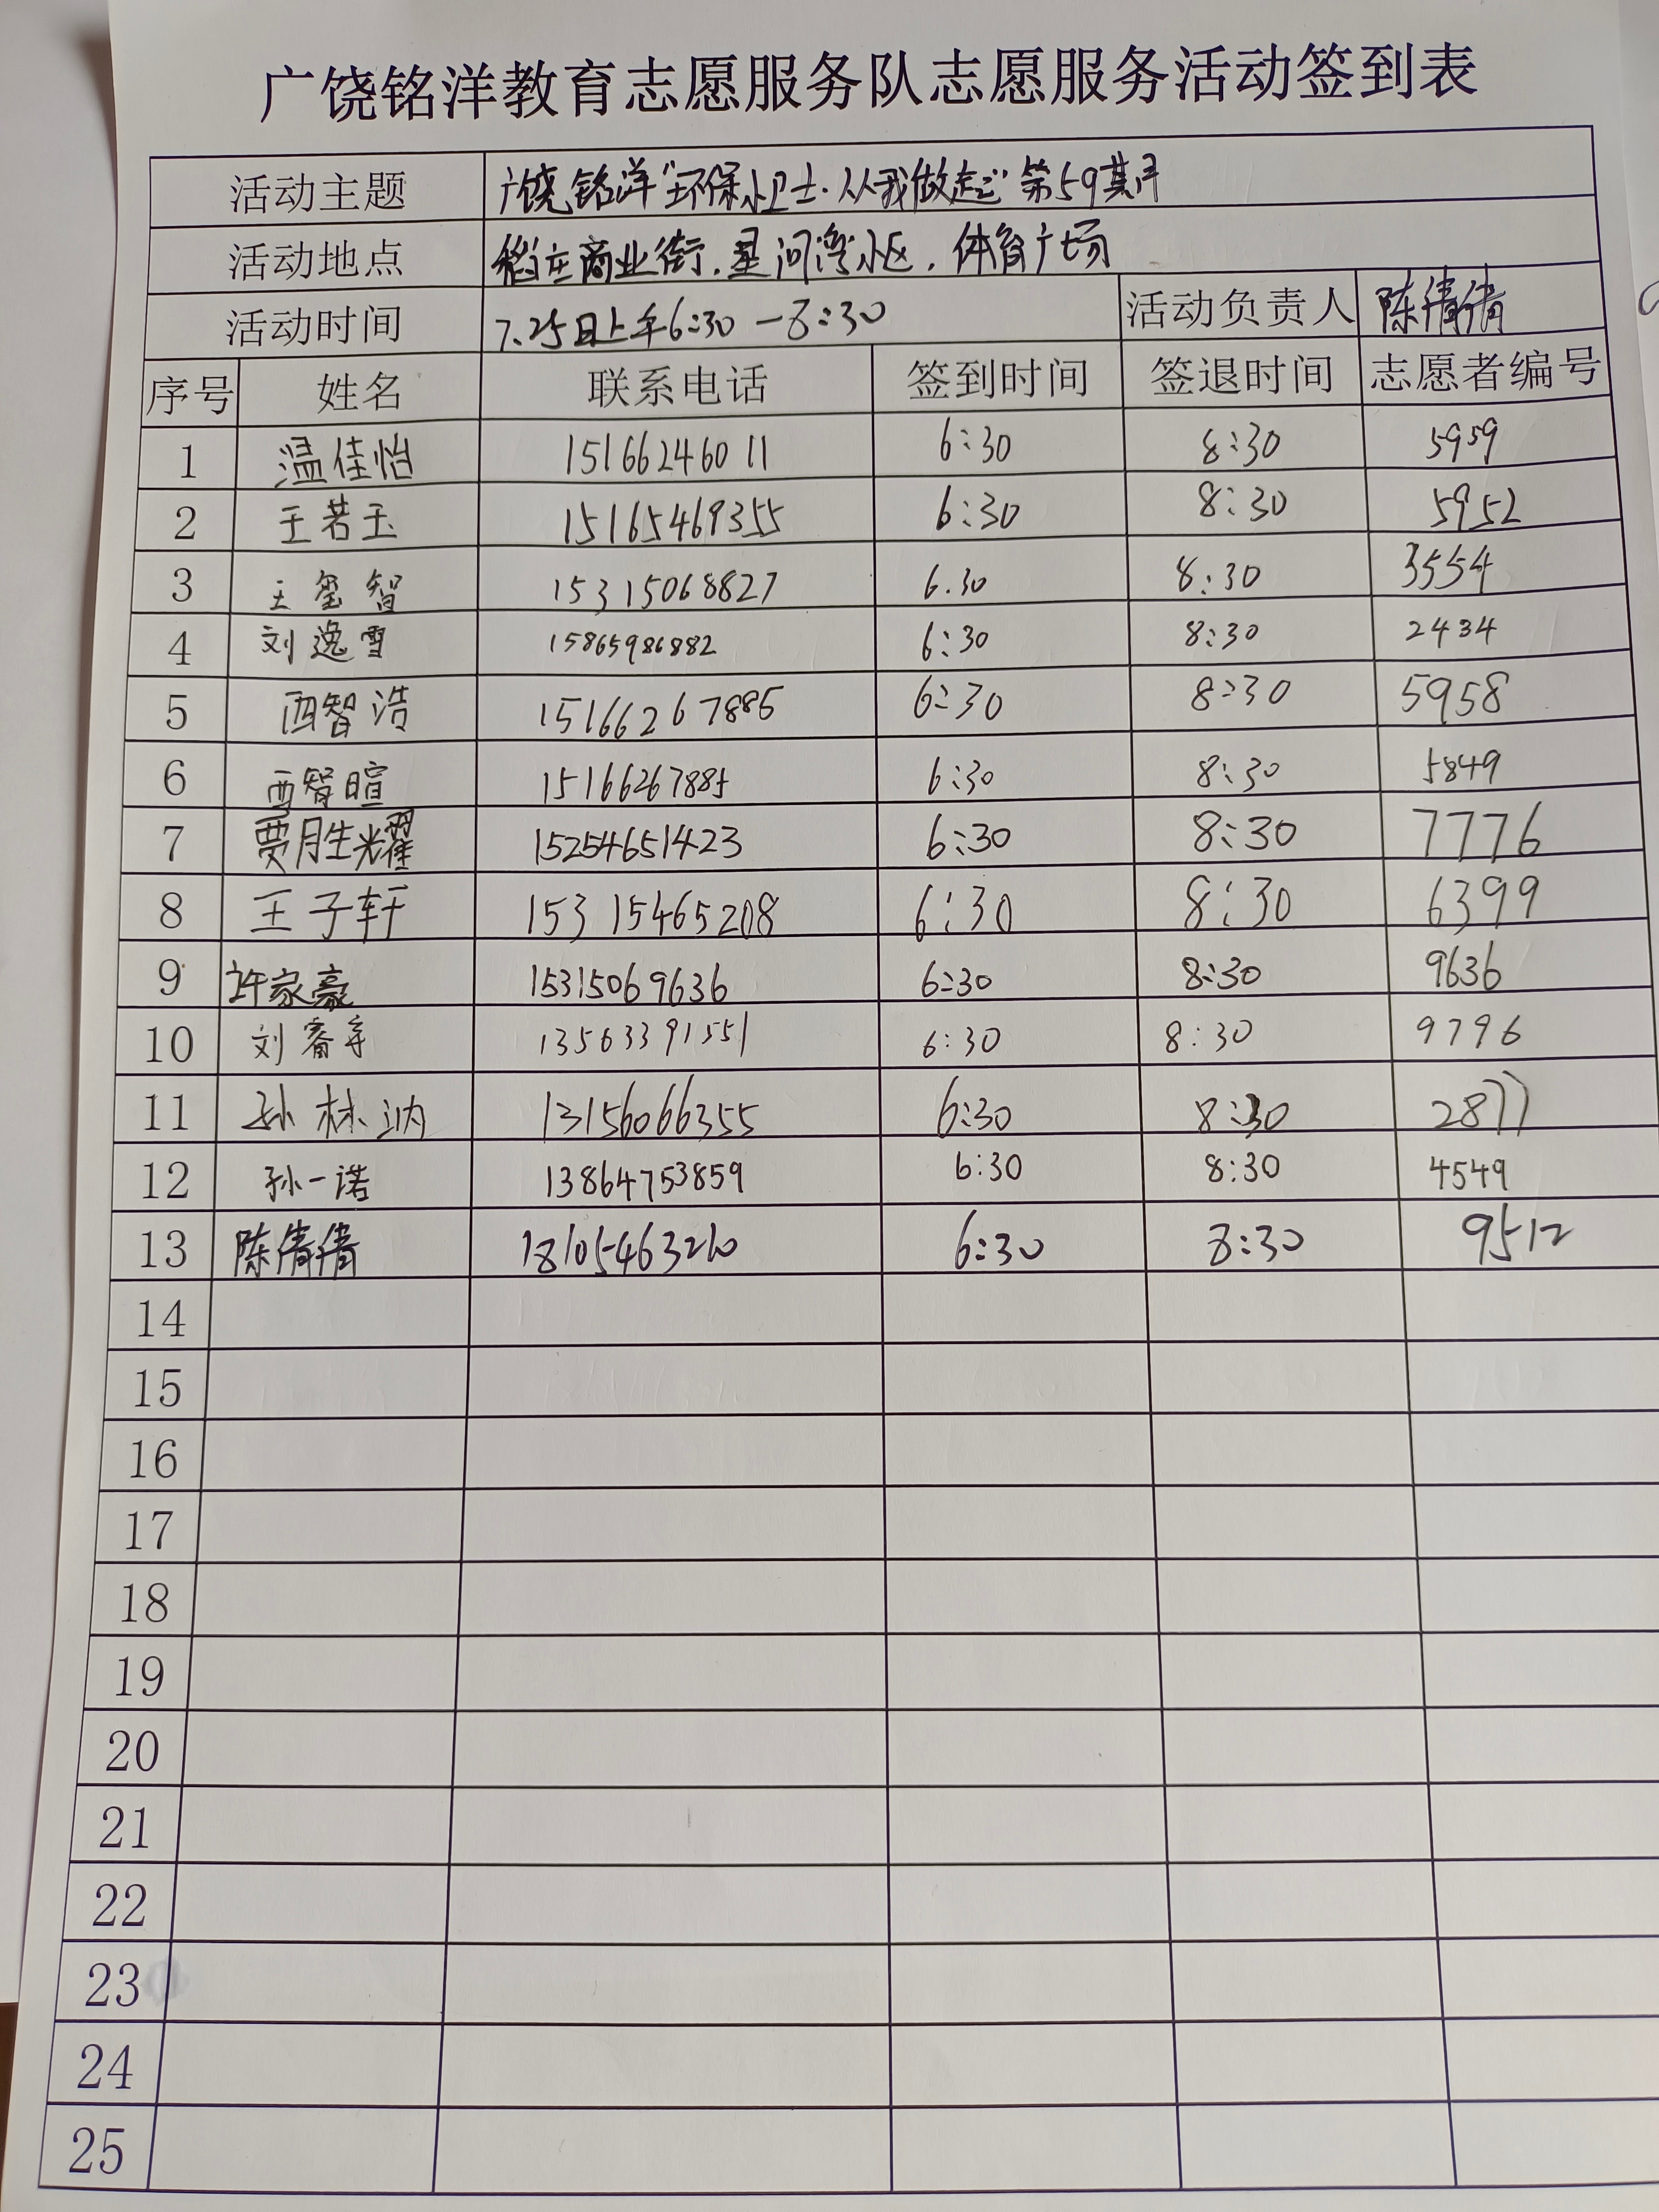 广饶铭洋教育志愿服务队志愿服务活动签到表
活动主题 广饶铭洋“环保小卫士·从我做起”第59期
活动地点 稻庄商业街,星河湾小区,体育广场
活动时间 7.25日上午6:30-8:30 活动负责人 陈倩倩
序号 姓名 联系电话 签到时间 签退时间 志愿者编号
1 温佳怡 15166246011 6:30 8:30 5959
2 王若玉 15165469355 6:30 8:30 5952
3 王玺智 15315068827 6.30 8:30 3554
4 刘逸雪 15865986882 6:30 8:30 2434
5 西智浩 15166267885 6:30 8:30 5958
6 西智暄 15166267885 6:30 8:30 5849
7 贾胜耀 15254651423 6:30 8:30 7776
8 王子轩 15315465208 6:30 8:30 6399
9 许家豪 15315069636 6:30 8:30 9636
10 刘睿 13563391551 6:30 8:30 9796
11 孙林 13156066355 6:30 8:30 2877
12 孙一诺 13864753859 6:30 8:30 4549
13 陈倩倩 18105463210 6:30 8:30 9512
14
15
16
17
18
19
20
21
22
23
24
25